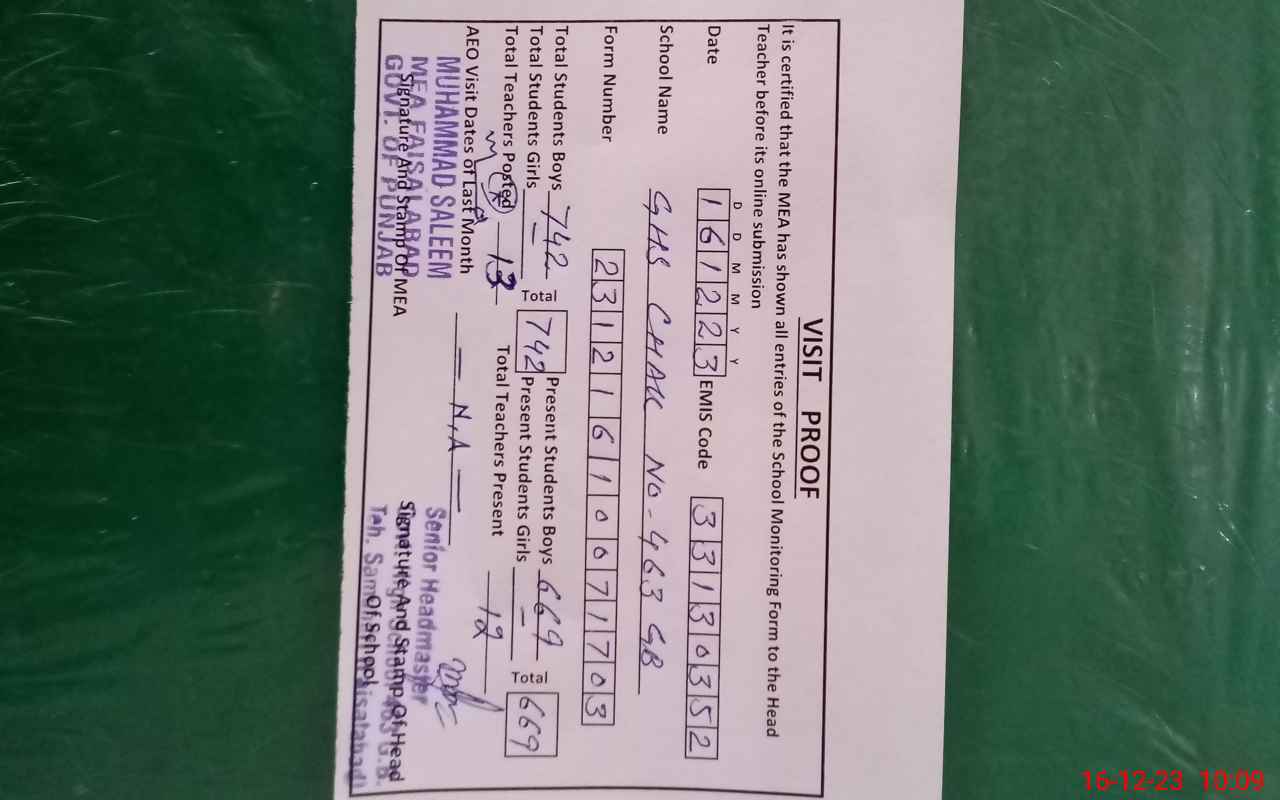 VISIT PROOF
It is certified that the MEA has shown all entries of the School Monitoring Form to the Head
Teacher before its online submission
D D M M Y Y
Date 161223 EMIS Code 33130352
School Name GHS CHAK NO-463 GB
Form Number 23121610071703
Total Students Boys 742 Total 742 Present Students Boys 669 Total 669
Total Students Girls – Present Students Girls –
Total Teachers Posted 13 Total Teachers Present 12
AEO Visit Dates of Last Month — N,A —
MUHAMMAD SALEEM
MEA FAISALABAD
GOVT. OF PUNJAB
Signature And Stamp Of MEA
Senior Headmaster
Signature And Stamp Of Head
Of School
16-12-23 10:09